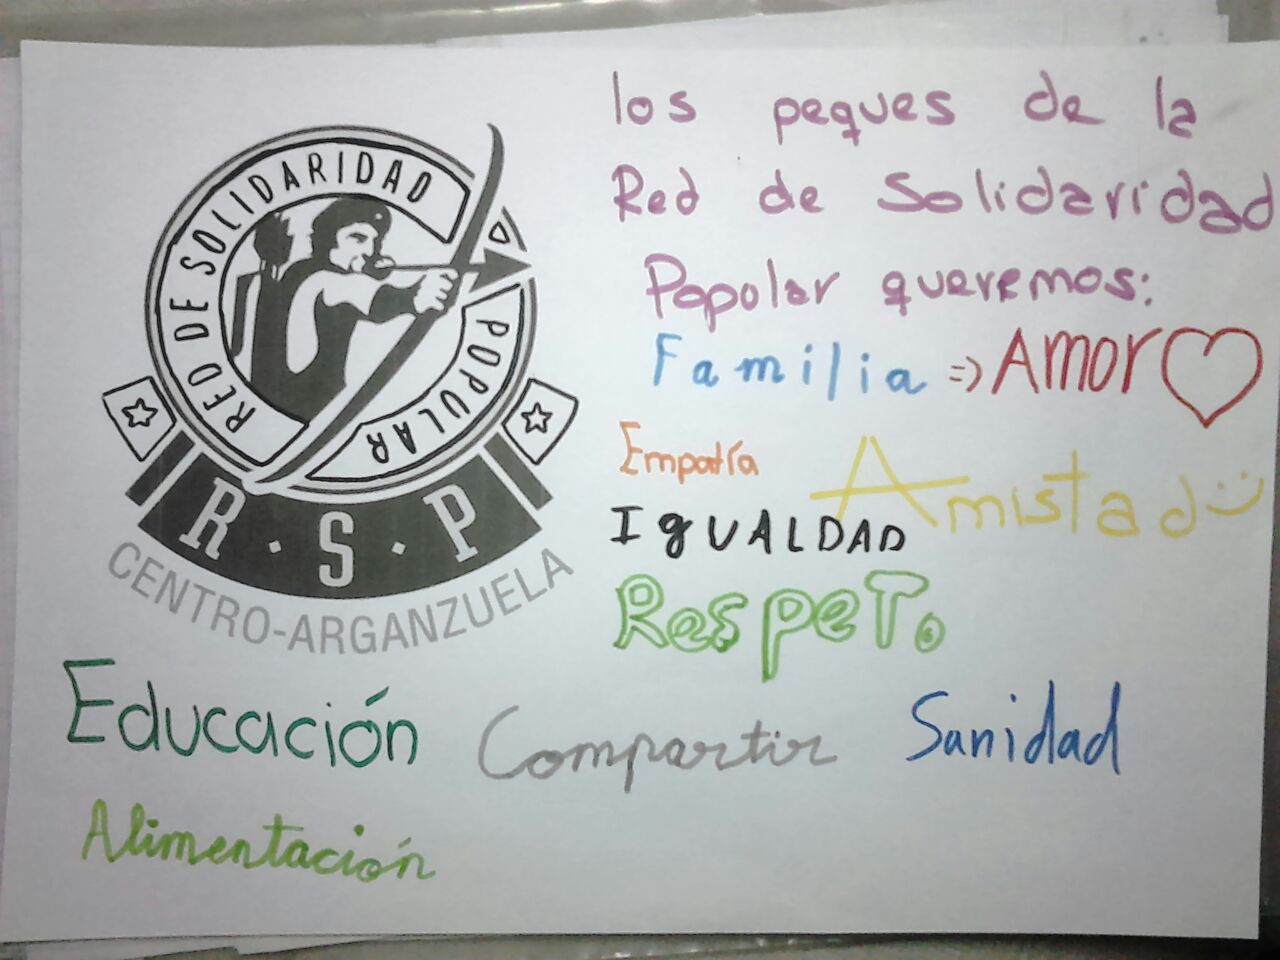 RED DE SOLIDARIDAD
POPULAR
R · S · P
CENTRO-ARGANZUELA
los peques de la
Red de Solidaridad
Popular queremos:
Familia => AMOR
Empatía
Amistad :)
IgUALDAD
RespeTo
Educación Compartir Sanidad
Alimentación